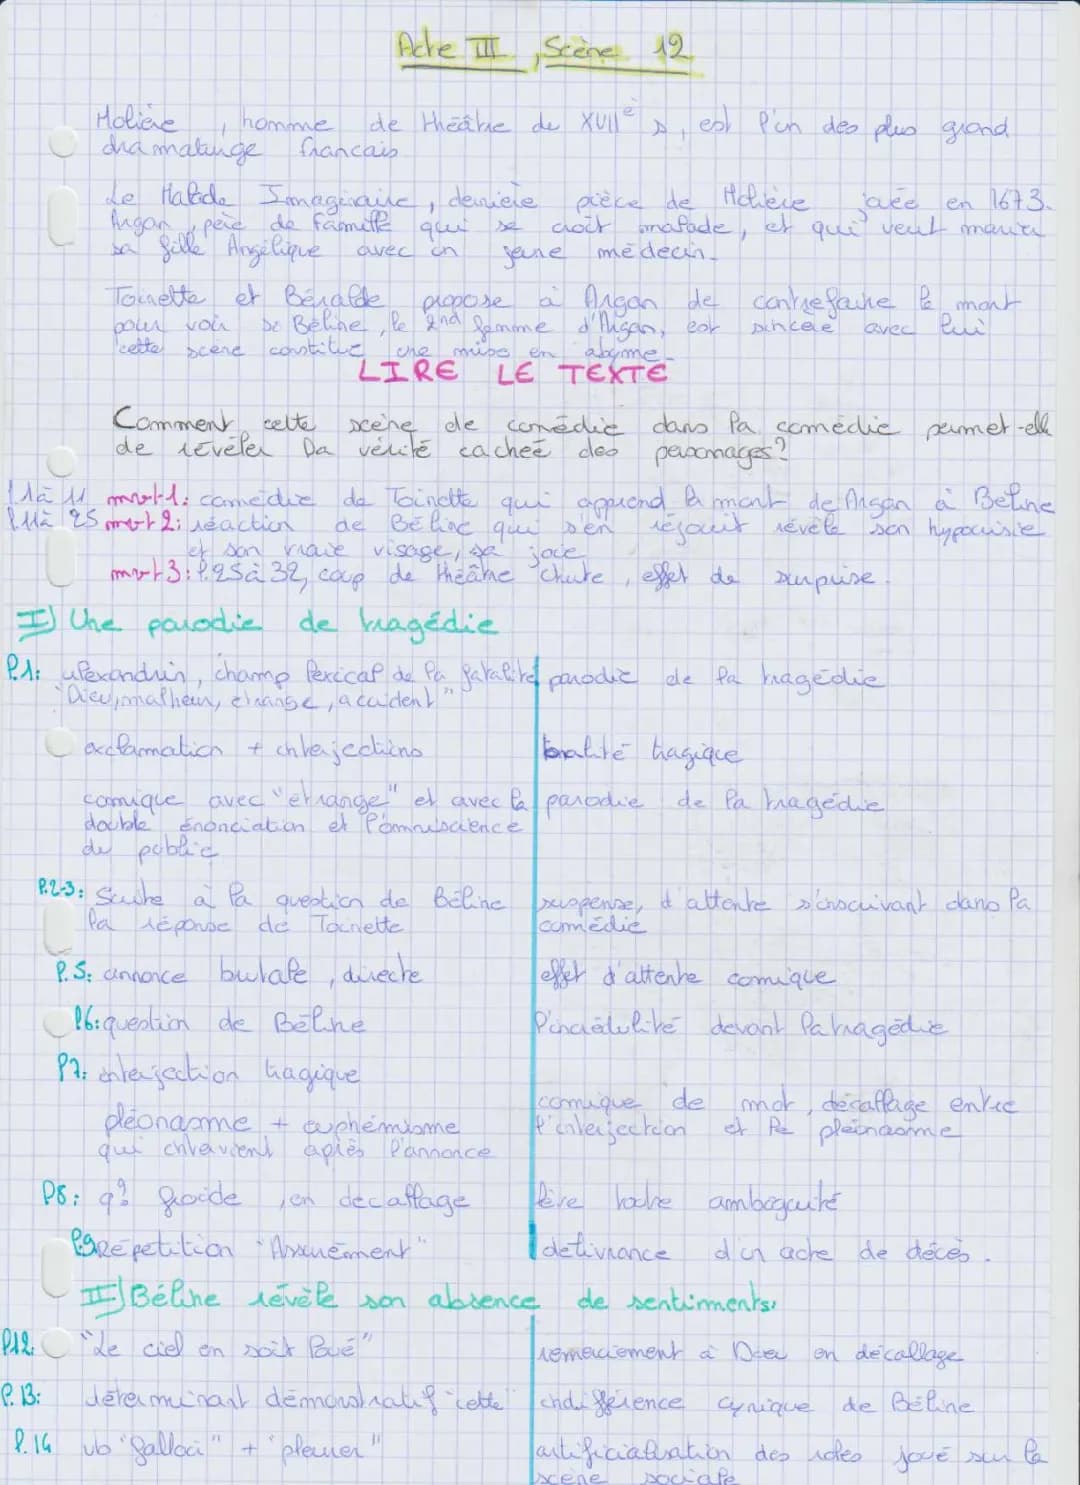 Acte III, Scène 12
Molière, homme de théâtre du XVIIè s, est l'un des plus grand
dramatuge francais
Le Malade Imaginaire, dernière pièce de Molière jouée en 1673.
Argan, père de famille qui se croit malade, et qui veut marier
sa fille Angélique avec un jeune médecin.
Toinette et Béralde propose à Argan de contrefaire le mort
pour voir si Béline, la 2nd femme d'Argan, est sincère avec lui
cette scène constitue une mise en abyme.
LIRE LE TEXTE
Comment cette scène de comédie dans la comédie permet-elle
de révéler la vérité cachée des personnages?
l.1 à 11 mvt 1: comédie de Toinette qui apprend la mort de Argan à Béline
l.11 à 25 mvt 2: réaction de Béline qui s'en réjouit révèle son hypocrisie
et son vraie visage, sa joie
mvt 3: l.25 à 32, coup de théâtre chute, effet de surprise.
I) Une parodie de tragédie
l.1: alexandrin, champ lexical de la fatalité parodie de la tragédie
"Dieu, malheur, étrange, accident"
exclamation + interjections tonalité tragique
comique avec "étrange" et avec la parodie de la tragédie
double énonciation et l'omniscience
du public
l.2-3: Suite à la question de Béline suspense, d'attente s'inscrivant dans la
la réponse de Toinette comédie
l.5: annonce brutale, directe effet d'attente comique
l6: question de Béline l'incrédulité devant la tragédie
l7: interjection tragique
pléonasme + euphémisme comique de mot, décallage entre
qui intervient après l'annonce l'interjection et le pléonasme
l8: q? froide, en décallage lève toute ambiguité
l9 Répetition "Assurément" délivrance d'un acte de décès.
II) Béline révèle son absence de sentiments.
l12. "Le ciel en soit loué" remerciement à Dieu en décallage
l.13: déterminant démonstratif "cette" indifférence cynique de Béline
l.14 vb "falloir" + "pleurer" artificialisation des rôles joué sur la
scène sociale